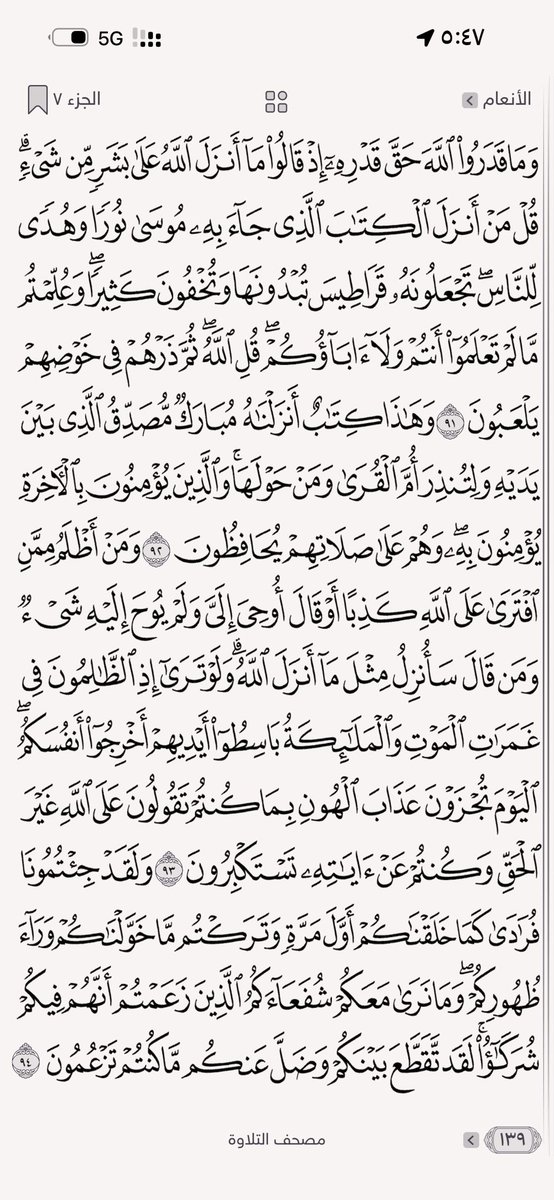 ٥:٤٧ 5G
الأنعام الجزء ٧
وَمَا قَدَرُواْ ٱللَّهَ حَقَّ قَدْرِهِۦٓ إِذْ قَالُواْ مَآ أَنزَلَ ٱللَّهُ عَلَىٰ بَشَرٖ مِّن شَيْءٖۗ
قُلْ مَنْ أَنزَلَ ٱلْكِتَٰبَ ٱلَّذِي جَآءَ بِهِۦ مُوسَىٰ نُورٗا وَهُدٗى
لِّلنَّاسِۖ تَجْعَلُونَهُۥ قَرَاطِيسَ تُبْدُونَهَا وَتُخْفُونَ كَثِيرٗاۖ وَعُلِّمْتُم
مَّا لَمْ تَعْلَمُوٓاْ أَنتُمْ وَلَآ ءَابَآؤُكُمْۖ قُلِ ٱللَّهُۖ ثُمَّ ذَرْهُمْ فِي خَوْضِهِمْ
يَلْعَبُونَ ٩١ وَهَٰذَا كِتَٰبٌ أَنزَلْنَٰهُ مُبَارَكٞ مُّصَدِّقُ ٱلَّذِي بَيْنَ
يَدَيْهِ وَلِتُنذِرَ أُمَّ ٱلْقُرَىٰ وَمَنْ حَوْلَهَاۚ وَٱلَّذِينَ يُؤْمِنُونَ بِٱلْأٓخِرَةِ
يُؤْمِنُونَ بِهِۦۖ وَهُمْ عَلَىٰ صَلَاتِهِمْ يُحَافِظُونَ ٩٢ وَمَنْ أَظْلَمُ مِمَّنِ
ٱفْتَرَىٰ عَلَى ٱللَّهِ كَذِبًا أَوْ قَالَ أُوحِيَ إِلَيَّ وَلَمْ يُوحَ إِلَيْهِ شَيْءٞ
وَمَن قَالَ سَأُنزِلُ مِثْلَ مَآ أَنزَلَ ٱللَّهُۗ وَلَوْ تَرَىٰٓ إِذِ ٱلظَّٰلِمُونَ فِي
غَمَرَٰتِ ٱلْمَوْتِ وَٱلْمَلَٰٓئِكَةُ بَاسِطُوٓاْ أَيْدِيهِمْ أَخْرِجُوٓاْ أَنفُسَكُمُۖ
ٱلْيَوْمَ تُجْزَوْنَ عَذَابَ ٱلْهُونِ بِمَا كُنتُمْ تَقُولُونَ عَلَى ٱللَّهِ غَيْرَ
ٱلْحَقِّ وَكُنتُمْ عَنْ ءَايَٰتِهِۦ تَسْتَكْبِرُونَ ٩٣ وَلَقَدْ جِئْتُمُونَا
فُرَٰدَىٰ كَمَا خَلَقْنَٰكُمْ أَوَّلَ مَرَّةٖ وَتَرَكْتُم مَّا خَوَّلْنَٰكُمْ وَرَآءَ
ظُهُورِكُمْۖ وَمَا نَرَىٰ مَعَكُمْ شُفَعَآءَكُمُ ٱلَّذِينَ زَعَمْتُمْ أَنَّهُمْ فِيكُمْ
شُرَكَٰٓؤُاْۚ لَقَد تَّقَطَّعَ بَيْنَكُمْ وَضَلَّ عَنكُم مَّا كُنتُمْ تَزْعُمُونَ ٩٤
١٣٩ مصحف التلاوة